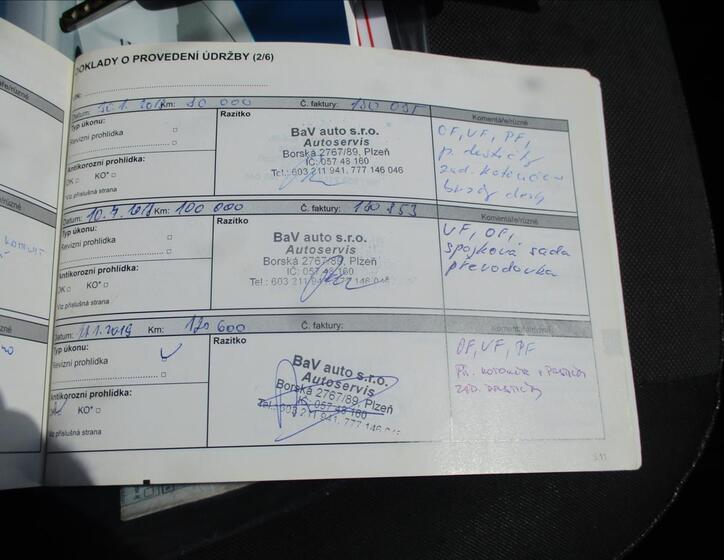 DOKLADY O PROVEDENÍ ÚDRŽBY (2/6)
VIN:
Datum: 30.1.2018 Km: 90 000 Č. faktury: 180 035
Typ úkonu:
Revizní prohlídka
Antikorozní prohlídka:
OK KO*
*Viz příslušná strana
Razítko
BaV auto s.r.o.
Autoservis
Borská 2767/89, Plzeň
IČ: 057 48 160
Tel.: 603 211 941, 777 146 046
Komentáře/různé
OF, VF, PF,
p. destičky
zad. kotouče
brzdy
Datum: 10.7.2018 Km: 100 000 Č. faktury: 180 353
Typ úkonu:
Revizní prohlídka
Antikorozní prohlídka:
OK KO*
*Viz příslušná strana
Razítko
BaV auto s.r.o.
Autoservis
Borská 2767/89, Plzeň
IČ: 057 48 160
Tel.: 603 211 941, 777 146 046
Komentáře/různé
VF, OF,
spojková sada
převodovka
Datum: 2019 Km: 120 600 Č. faktury:
Typ úkonu:
Revizní prohlídka
Antikorozní prohlídka:
OK KO*
*Viz příslušná strana
Razítko
BaV auto s.r.o.
Autoservis
Borská 2767/89, Plzeň
IČ: 057 48 160
Tel.: 603 211 941, 777 146 046
Komentáře/různé
OF, VF, PF
PŘ. KOTOUČE + DESTIČKY
ZAD. DESTIČKY
5.11